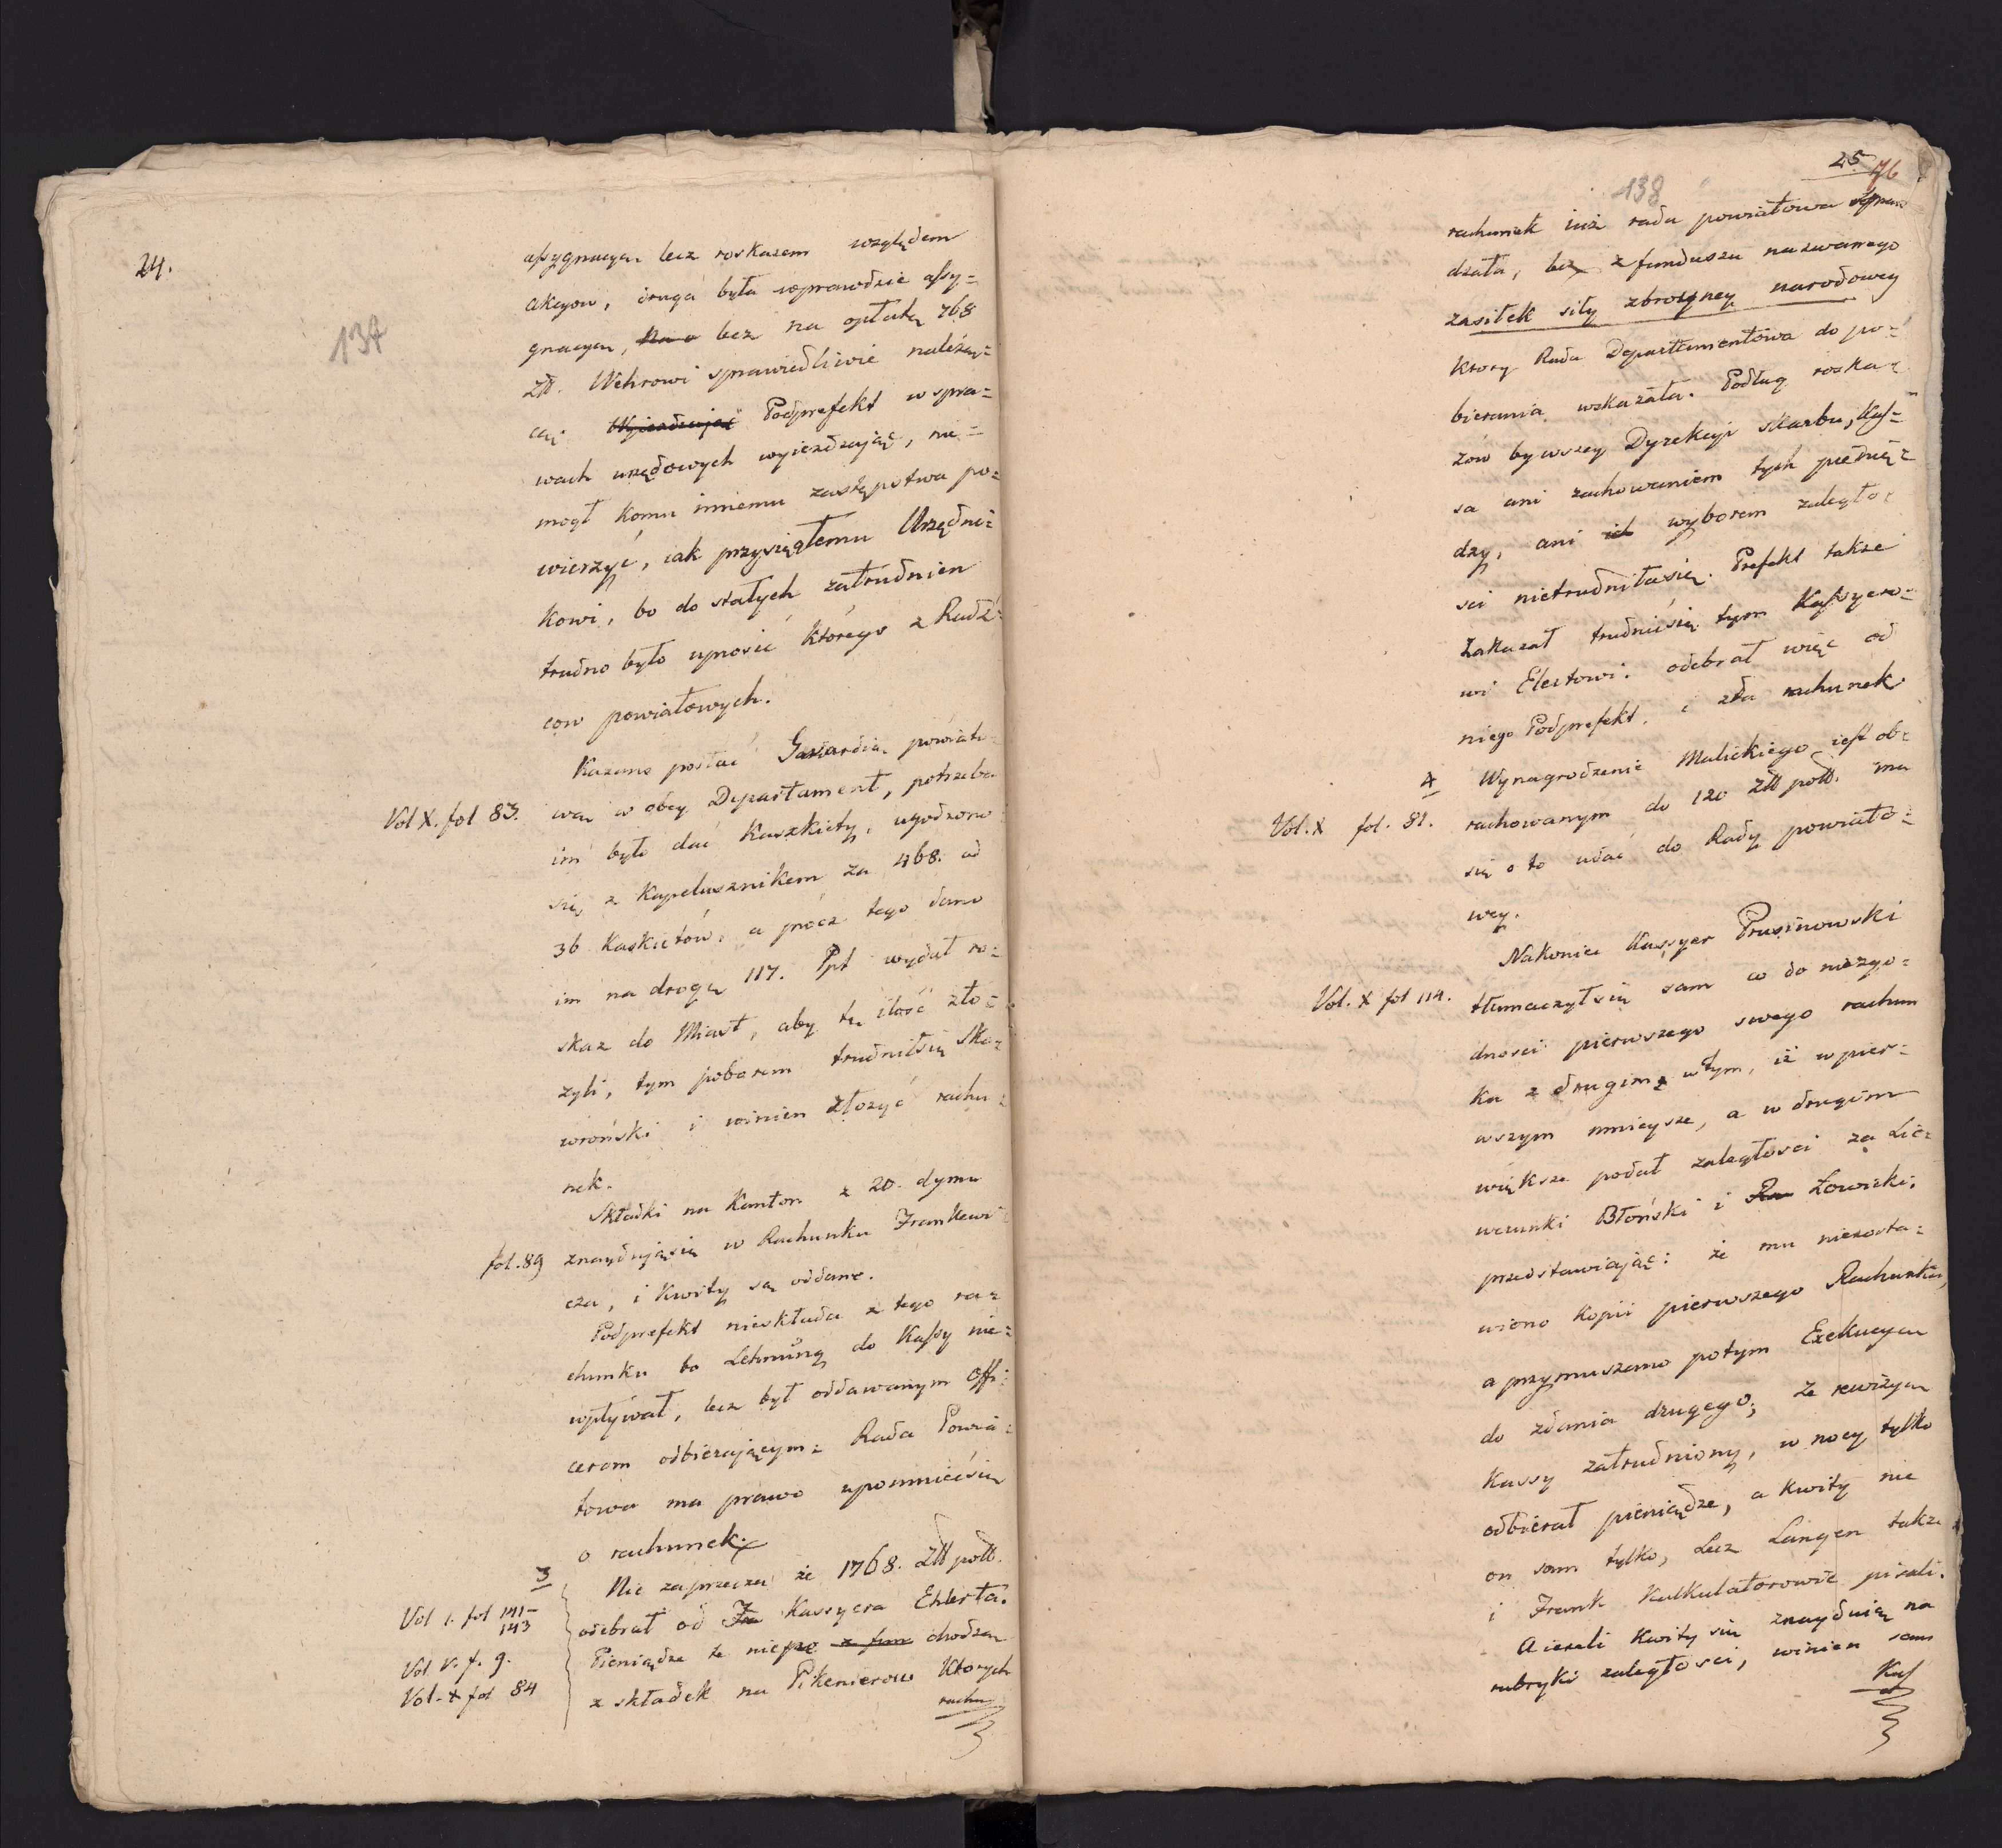 24.
137
assygnacyą lecz roskazem względem
akcyow, druga była wprawdzie assy=
gnacyą, lecz na opłatę 768
Złł. Wehrowi sprawiedliwie należą=
cą. Wyiezdzaiąc Podprefekt w spra=
wach urzędowych wyiezdzaiąc, nie=
mogł komu innemu zastępstwa po=
wierzyć, iak przysięgłemu Urzędni=
kowi, bo do stałych zatrudnien
trudno było uprosić którego z Radź=
cow powiatowych.
Kazano posłać Gwardią powiato=
Vol X. fol 83. wą w obcy Departament, potrzeba
im było dać Kaszkiety, ugodzono
się z Kapelusznikem za 468. od
36 Kaskietów, a procz tego dano
im na drogę 117. Ppt wydał ro=
skaz do Miast, aby tę ilość zło=
zyli, tym poborem trudnił się Sko=
wroński i winien złozyć rachu=
nek.
Składki na Kanton z 20. dymu
fol. 89 znayduiąsię w Rachunku Frankewi=
cza, i Kwity są oddane.
Podprefekt nieskłada z tego ra=
chunku bo Lehnung do Kassy nie=
wpływał, lecz był oddawanym Offi=
cerom odbieraiącym. Rada Powia=
towa ma prawo upomniećsię
o rachunek.
3 Nie zaprzecza że 1768. Złł poll.
Vol 1. fol 141-143 odebrał od Fra Kassyera Ehlerta.
Vol V. f. 9. Pieniądze te nie z fun chodzą
Vol. X fol 84 z składek na Pikenierow których
rachu
25
76
138
rachunek iuż rada powiatowa
działa, lecz z funduszu nazwanego
zasiłek siły zbroyney narodowey
ktory Rada Departamentowa do po=
bierania wskazała. Podług roska=
zów bywszey Dyrekcyi skarbu, Kas=
sa ani zachowaniem tych pienię=
dzy, ani ich wyborem zaległo=
sci nietrudniłasię. Prefekt także
zakazał trudnićsię tym Kassyero=
wi Elertowi. odebrał więc od
niego Podprefekt. i zda rachunek
4 Wynagrodzenie Malickiego iest ob=
Vol. X fol. 81. rachowanym do 120 Złł poll. ma
się o to udać do Rady powiato=
wey.
Nakoniec Kassyer Prusinowski
Vol. X fol 114. tłumaczyłsię sam co do niezgo=
dnosci pierwszego swego rachun
ku z drugim w tym, iż w pier=
wszym mnieysze, a w drugim
większe podał zaległosci za Lie=
werunki Błoński i Łowicki,
przedstawiaiąc: że mu niezosta=
wiono kopii pierwszego Rachunku,
a przymuszano potym Exekucyą
do zdania drugego, że rewizyą
Kassy zatrudniony, w nocy tylko
odbierał pieniądze, a Kwity nie
on sam tylko, Lecz Langen także
i Frank Kalkulatorowie pisali.
A iezeli Kwity się znayduią na
rubryki zaległosci, winien sam
Kas